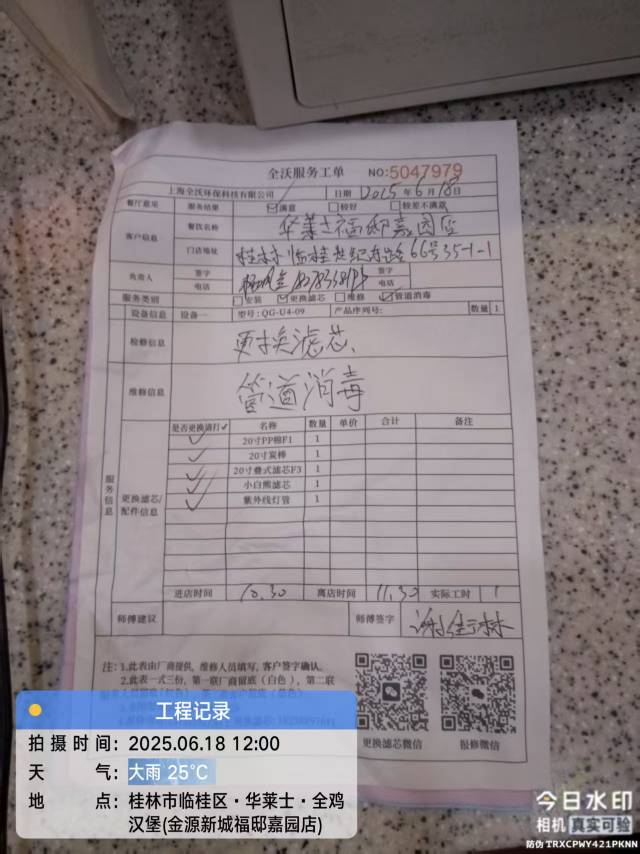 全沃服务工单 NO:5047979
上海全沃环保科技有限公司 日期 2015年6月18日
餐厅意见 服务结果 ☑满意 □较好 □较差不满意
客户信息 餐饮名称 华莱士福邸嘉园店
门店地址 桂林临桂世纪东路66号35-1-1
负责人 签字 签字
电话 电话
服务类别 □安装 ☑更换滤芯 □维修 ☑管道消毒
设备信息 设备一 型号:QG-U4-09 产品序列号: 数量 1
检修信息 更换滤芯、
维修信息 管道消毒
服务信息 更换滤芯/配件信息
是否更换请打✓ 名称 数量 单价 合计 备注
✓ 20寸PP棉F1 1
✓ 20寸炭棒 1
✓ 20寸叠式滤芯F3 1
✓ 小白熊滤芯 1
✓ 紫外线灯管 1
进店时间 10.30 离店时间 11.30 实际工时 1
师傅建议 师傅签字 谢佳林
注:1.此表由厂商提供,维修人员填写,客户签字确认。
2.此表一式三份,第一联厂商留底(白色),第二联
更换滤芯微信 报修微信
工程记录
拍摄时间: 2025.06.18 12:00
天气: 大雨 25℃
地点: 桂林市临桂区·华莱士·全鸡
汉堡(金源新城福邸嘉园店)
今日水印
相机 真实可验
防伪 TRXCPWY421PKNN